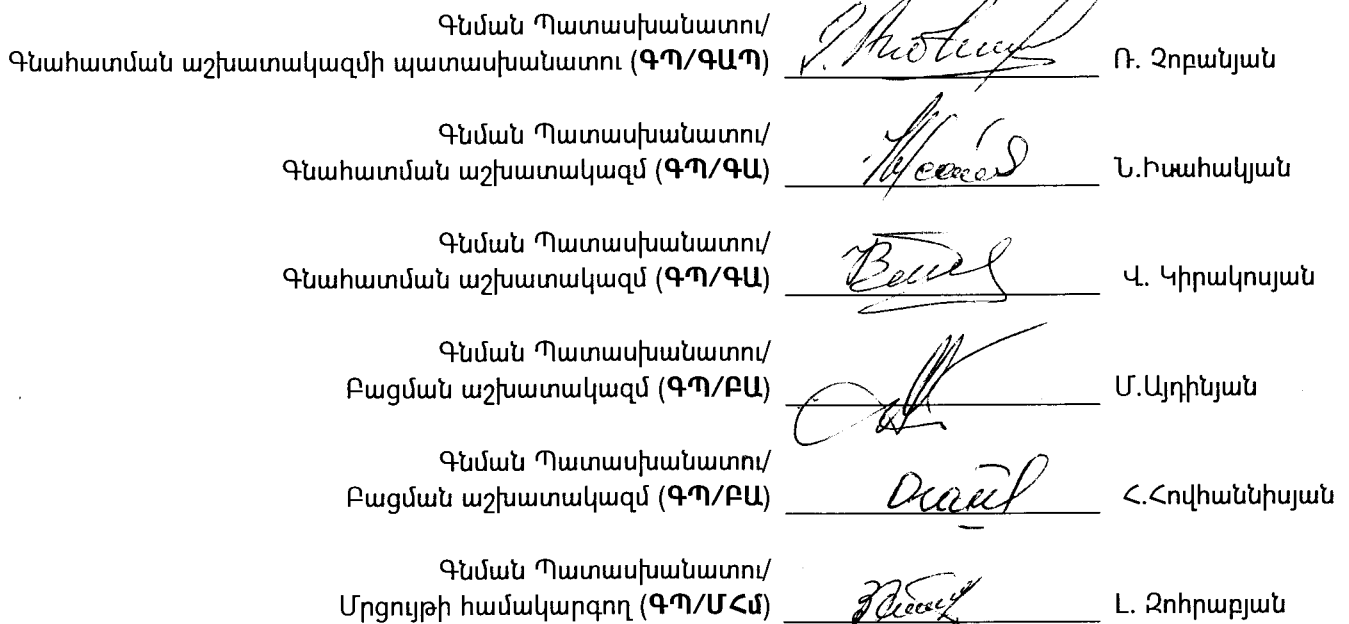 Գնման Պատասխանատու/
Գնահատման աշխատակազմի պատասխանատու (ԳՊ/ԳԱՊ) Ռ. Չոբանյան
Գնման Պատասխանատու/
Գնահատման աշխատակազմ (ԳՊ/ԳԱ) Ն.Իսահակյան
Գնման Պատասխանատու/
Գնահատման աշխատակազմ (ԳՊ/ԳԱ) Վ. Կիրակոսյան
Գնման Պատասխանատու/
Բացման աշխատակազմ (ԳՊ/ԲԱ) Մ.Այդինյան
Գնման Պատասխանատու/
Բացման աշխատակազմ (ԳՊ/ԲԱ) Հ.Հովհաննիսյան
Գնման Պատասխանատու/
Մրցույթի համակարգող (ԳՊ/ՄՀմ) Լ. Զոհրաբյան